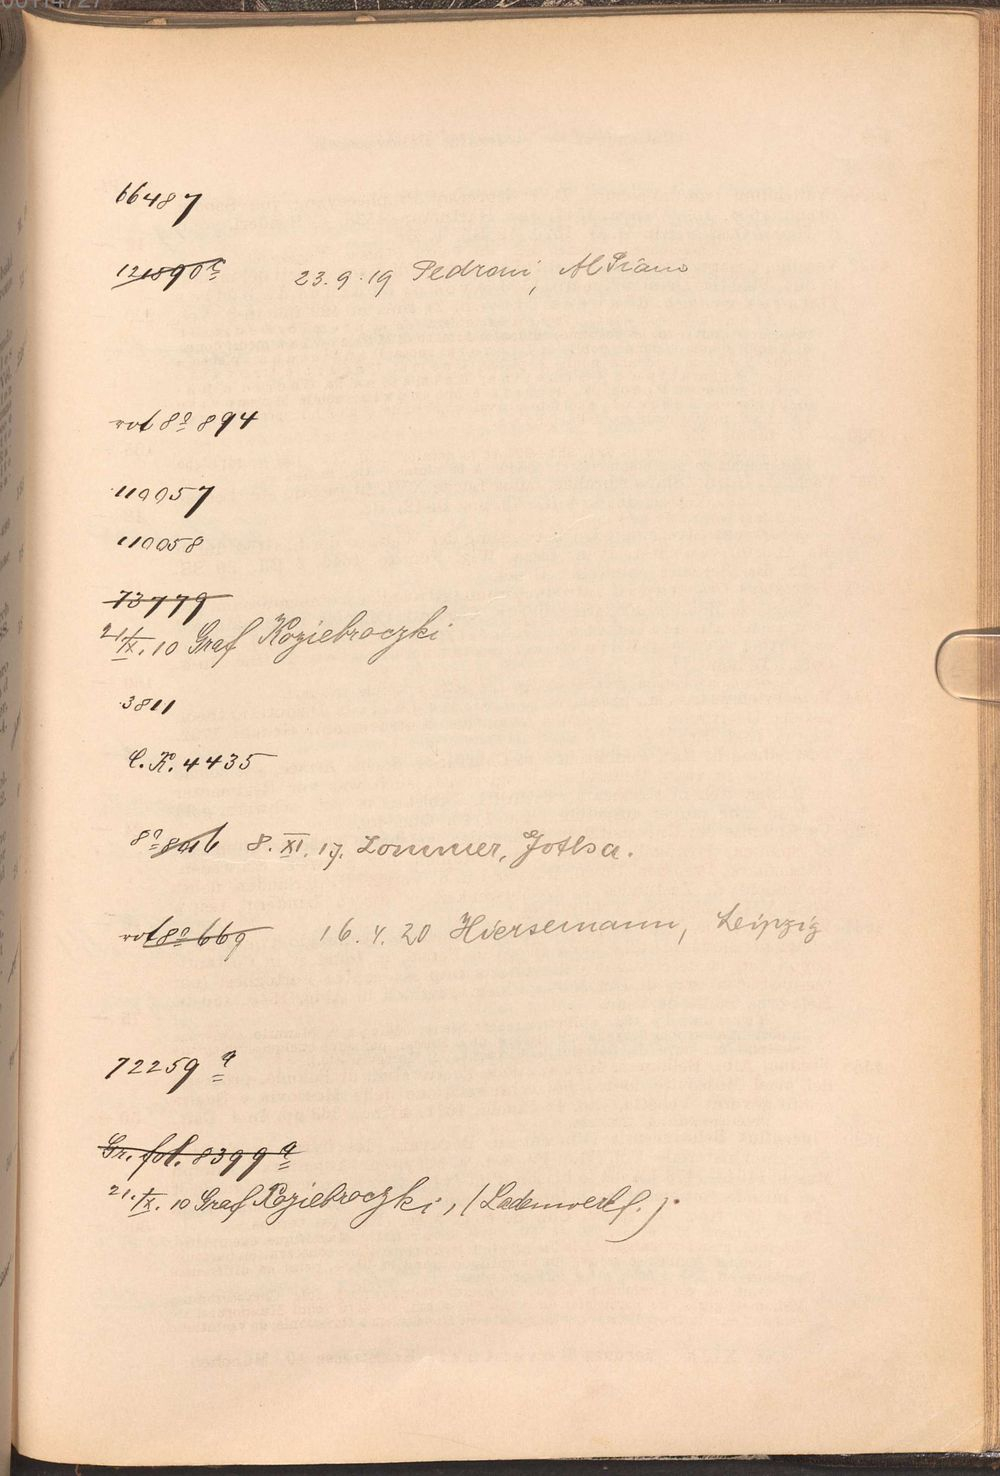 66487
121890a 23.9.19 Pedroni,
rot 8º 894
110057
110058
73779
21/IX. 10 Graf Koziebroczki
3811
C.K. 4435
8º 8016 8. XI. 17. Lommer, Gotha.
rot 8º 669 16.4.20 Hiersemann, Leipzig
72259 a
Gr. fol. 8399 a
21./IX. 10 Graf Koziebroczki,